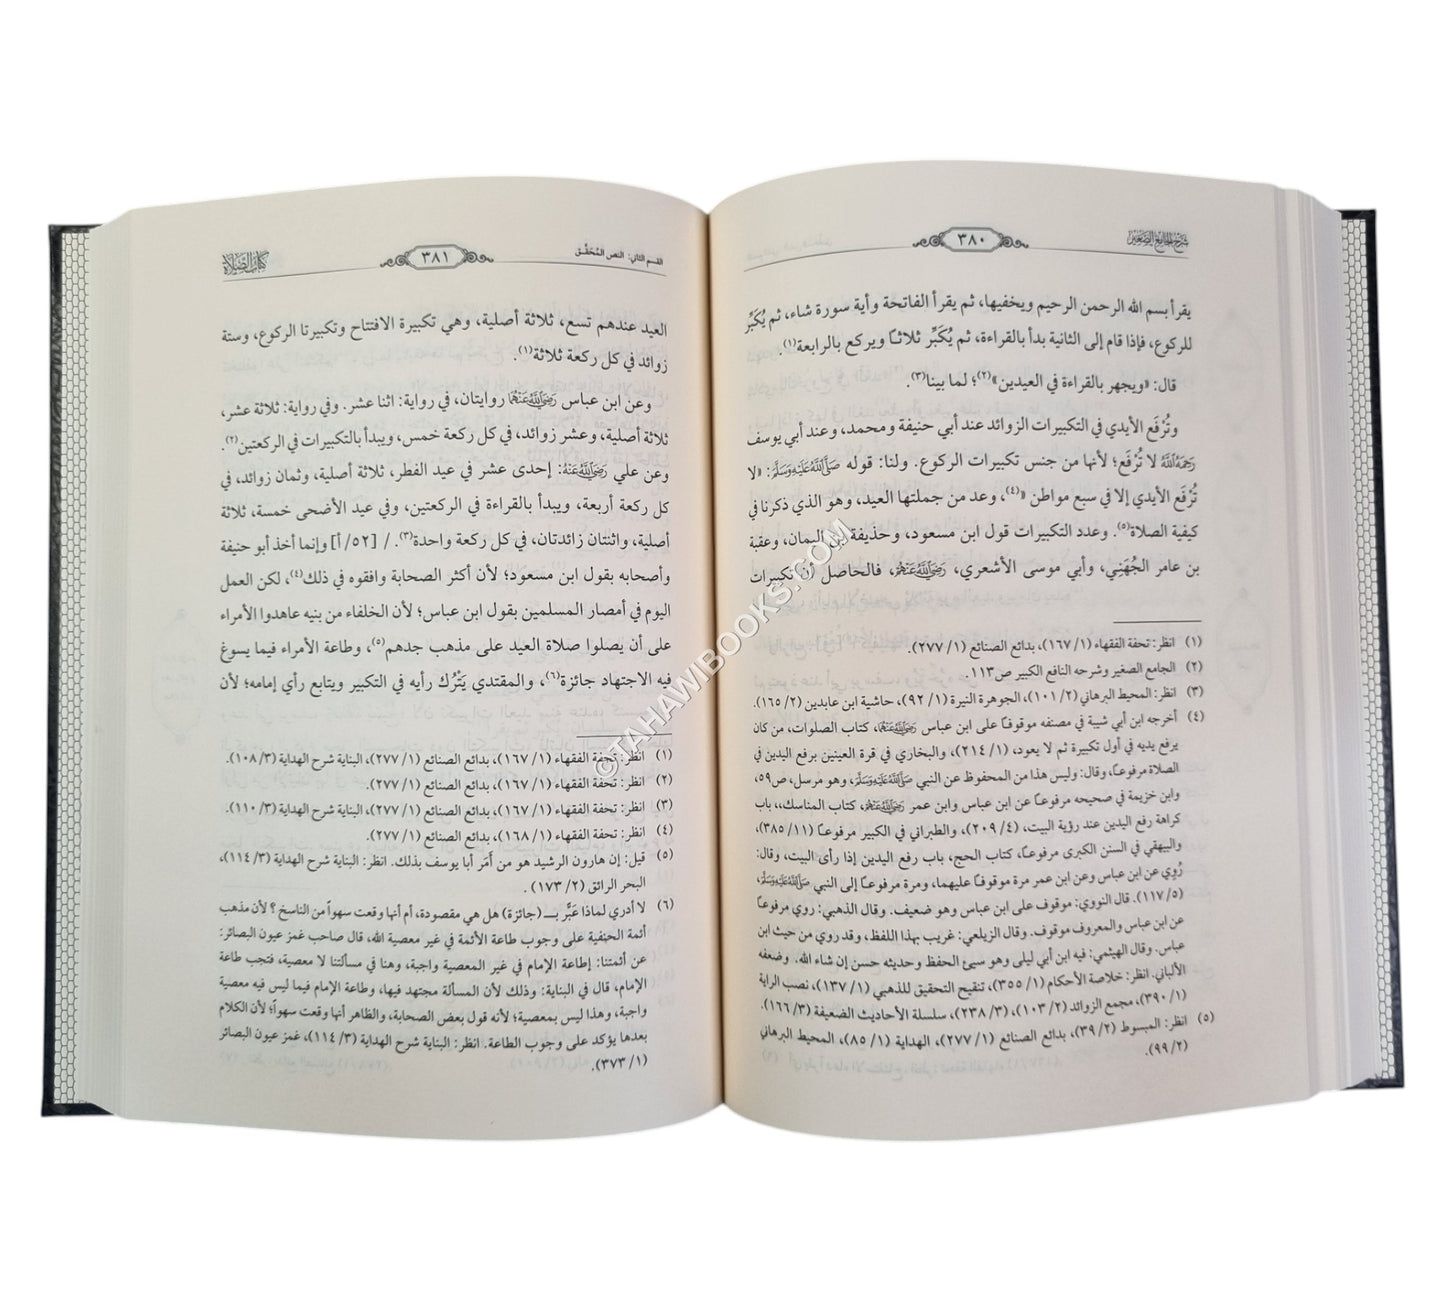 شرح الجامع الصغير
٣٨٠
يقرأ بسم الله الرحمن الرحيم ويخفيها، ثم يقرأ الفاتحة وأية سورة شاء، ثم يُكَبِّر
للركوع، فإذا قام إلى الثانية بدأ بالقراءة، ثم يُكَبِّر ثلاثًا ويركع بالرابعة(١).
قال: «ويجهر بالقراءة في العيدين»(٢)؛ لما بينا(٣).
وتُرْفَع الأيدي في التكبيرات الزوائد عند أبي حنيفة ومحمد، وعند أبي يوسف
رَحِمَهُ اللَّهُ لا تُرْفَع؛ لأنها من جنس تكبيرات الركوع. ولنا: قوله صَلَّى اللَّهُ عَلَيْهِ وَسَلَّمَ: «لا
تُرْفَع الأيدي إلا في سبع مواطن»(٤)، وعد من جملتها العيد، وهو الذي ذكرنا في
كيفية الصلاة(٥). وعدد التكبيرات قول ابن مسعود، وحذيفة بن اليمان، وعقبة
بن عامر الجُهَنِي، وأبي موسى الأشعري، رَضِيَ اللَّهُ عَنْهُمْ، فالحاصل أن تكبيرات
(١) انظر: تحفة الفقهاء (١/ ١٦٧)، بدائع الصنائع (١/ ٢٧٧).
(٢) الجامع الصغير وشرحه النافع الكبير ص١١٣.
(٣) انظر: المحيط البرهاني (٢/ ١٠١)، الجوهرة النيرة (١/ ٩٢)، حاشية ابن عابدين (٢/ ١٦٥).
(٤) أخرجه ابن أبي شيبة في مصنفه موقوفًا على ابن عباس رَضِيَ اللَّهُ عَنْهُمَا، كتاب الصلوات، من كان
يرفع يديه في أول تكبيرة ثم لا يعود، (١/ ٢١٤)، والبخاري في قرة العينين برفع اليدين في
الصلاة مرفوعًا، وقال: وليس هذا من المحفوظ عن النبي صَلَّى اللَّهُ عَلَيْهِ وَسَلَّمَ، وهو مرسل، ص٥٩،
وابن خزيمة في صحيحه مرفوعًا عن ابن عباس وابن عمر رَضِيَ اللَّهُ عَنْهُمْ، كتاب المناسك،، باب
كراهة رفع اليدين عند رؤية البيت، (٤/ ٢٠٩)، والطبراني في الكبير مرفوعًا (١١/ ٣٨٥)،
والبيهقي في السنن الكبرى مرفوعًا، كتاب الحج، باب رفع اليدين إذا رأى البيت، وقال:
رُوِي عن ابن عباس وعن ابن عمر مرة موقوفًا عليهما، ومرة مرفوعًا إلى النبي صَلَّى اللَّهُ عَلَيْهِ وَسَلَّمَ،
(٥/ ١١٧). قال النووي: موقوف على ابن عباس وهو ضعيف. وقال الذهبي: روي مرفوعًا
عن ابن عباس والمعروف موقوف. وقال الزيلعي: غريب بهذا اللفظ، وقد روي من حيث ابن
عباس. وقال الهيثمي: فيه ابن أبي ليلى وهو سيئ الحفظ وحديثه حسن إن شاء الله. وضعفه
الألباني. انظر: خلاصة الأحكام (١/ ٣٥٥)، تنقيح التحقيق للذهبي (١/ ١٣٧)، نصب الراية
(١/ ٣٩٠)، مجمع الزوائد (٢/ ١٠٣)، (٣/ ٢٣٨)، سلسلة الأحاديث الضعيفة (٣/ ١٦٦).
(٥) انظر: المبسوط (٢/ ٣٩)، بدائع الصنائع (١/ ٢٧٧)، الهداية (١/ ٨٥)، المحيط البرهاني
(٢/ ٩٩).
القسم الثاني: النص المُحَقَّق
٣٨١
كتاب الصلاة
العيد عندهم تسع، ثلاثة أصلية، وهي تكبيرة الافتتاح وتكبيرتا الركوع، وستة
زوائد في كل ركعة ثلاثة(١).
وعن ابن عباس رَضِيَ اللَّهُ عَنْهُمَا روايتان، في رواية: اثنا عشر. وفي رواية: ثلاثة عشر،
ثلاثة أصلية، وعشر زوائد، في كل ركعة خمس، ويبدأ بالتكبيرات في الركعتين(٢).
وعن علي رَضِيَ اللَّهُ عَنْهُ: إحدى عشر في عيد الفطر، ثلاثة أصلية، وثمان زوائد، في
كل ركعة أربعة، ويبدأ بالقراءة في الركعتين، وفي عيد الأضحى خمسة، ثلاثة
أصلية، واثنتان زائدتان، في كل ركعة واحدة(٣). / [٥٢/ أ] وإنما أخذ أبو حنيفة
وأصحابه بقول ابن مسعود؛ لأن أكثر الصحابة وافقوه في ذلك(٤)، لكن العمل
اليوم في أمصار المسلمين بقول ابن عباس؛ لأن الخلفاء من بنيه عاهدوا الأمراء
على أن يصلوا صلاة العيد على مذهب جدهم(٥)، وطاعة الأمراء فيما يسوغ
فيه الاجتهاد جائزة(٦)، والمقتدي يَتْرُك رأيه في التكبير ويتابع رأي إمامه؛ لأن
(١) انظر: تحفة الفقهاء (١/ ١٦٧)، بدائع الصنائع (١/ ٢٧٧)، البناية شرح الهداية (٣/ ١٠٨).
(٢) انظر: تحفة الفقهاء (١/ ١٦٧)، بدائع الصنائع (١/ ٢٧٧).
(٣) انظر: تحفة الفقهاء (١/ ١٦٧)، بدائع الصنائع (١/ ٢٧٧)، البناية شرح الهداية (٣/ ١١٠).
(٤) انظر: تحفة الفقهاء (١/ ١٦٨)، بدائع الصنائع (١/ ٢٧٧).
(٥) قيل: إن هارون الرشيد هو من أَمَر أبا يوسف بذلك. انظر: البناية شرح الهداية (٣/ ١١٤)،
البحر الرائق (٢/ ١٧٣) .
(٦) لا أدري لماذا عَبَّر بــ(جائزة) هل هي مقصودة، أم أنها وقعت سهواً من الناسخ؟ لأن مذهب
أئمة الحنفية على وجوب طاعة الأئمة في غير معصية الله، قال صاحب غمز عيون البصائر:
عن أئمتنا: إطاعة الإمام في غير المعصية واجبة، وهنا في مسألتنا لا معصية، فتجب طاعة
الإمام، قال في البناية: وذلك لأن المسألة مجتهد فيها، وطاعة الإمام فيما ليس فيه معصية
واجبة، وهذا ليس بمعصية؛ لأنه قول بعض الصحابة، والظاهر أنها وقعت سهواً؛ لأن الكلام
بعدها يؤكد على وجوب الطاعة. انظر: البناية شرح الهداية (٣/ ١١٤)، غمز عيون البصائر
(١/ ٣٧٣).
©TAHAWIBOOKS.COM